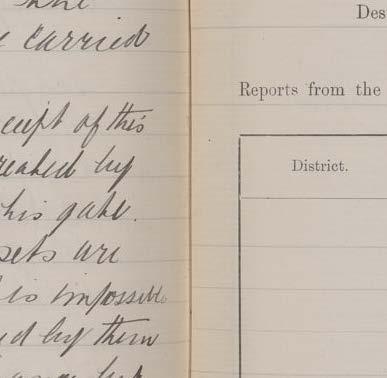 carried
ceipt of this
by
his gate.
sets are
is impossible
ed by them
Des
Reports from the
District.